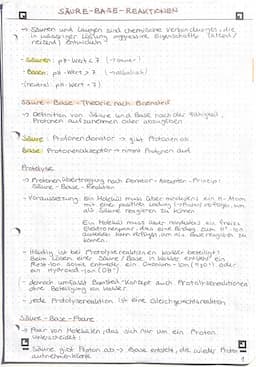 SÄURE-BASE-REAKTIONEN
→ Säuren und Laugen sind chemische Verbindungen, die
in wässriger Lösung aggressive Eigenschaften (ätzend /
reizend) entwickeln
- Säuren: pH-Wert < 7 (→ sauer)
- Basen: pH-Wert > 7 (→ alkalisch)
(neutral: pH-Wert = 7)
Säure-Base-Theorie nach Brønsted
→ Definition von Säure und Base nach der Fähigkeit,
Protonen aufzunehmen oder abzugeben
Säure: Protonendonator → gibt Protonen ab
Base: Protonenakzeptor → nimmt Protonen auf
Protolyse
→ Protonenübertragung nach Donator-Akzeptor-Prinzip:
Säure-Base-Reaktion
- Voraussetzung: Ein Molekül muss über mindestens ein H-Atom
mit einer positiven Ladung verfügen, um
als Säure reagieren zu können
Ein Molekül muss über mindestens ein freies
Elektronenpaar, das eine Bindung zum H⁺-Ion
ausbilden kann verfügen, um als Base reagieren zu
können.
- Häufig ist bei Protolysereaktionen Wasser beteiligt:
Beim Lösen einer Säure / Base in Wasser entsteht ein
Rest-Ion sowie entweder ein Oxonium-Ion (H₃O⁺) oder
ein Hydroxid-Ion (OH⁻)
(- dennoch umfasst Brønsted-Konzept auch Protolysereaktionen
ohne Beteiligung von Wasser)
- jede Protolysereaktion ist eine Gleichgewichtsreaktion
Säure-Base-Paare
→ Paar von Molekülen, das sich nur um ein Proton
unterscheidet:
Säure gibt Proton ab → Base entsteht, die wieder Proton
aufnehmen könnte
1